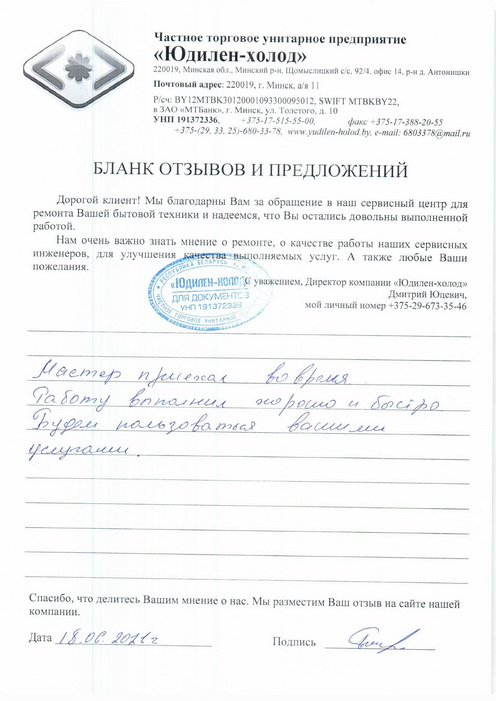 Частное торговое унитарное предприятие
«Юдилен-холод»
220019, Минская обл., Минский р-н. Щомыслицкий с/с, 92/4, офис 14, р-н д. Антонишки
Почтовый адрес: 220019, г. Минск, а/я 11
Р/сч: BY12MTBK30120001093300095012, SWIFT MTBKBY22,
в ЗАО «МТБанк», г. Минск, ул. Толстого, д. 10
УНП 191372336, +375-17-515-55-00, факс +375-17-388-20-55
+375-(29, 33, 25)-680-33-78, www.yudilen-holod.by, e-mail: 6803378@mail.ru
БЛАНК ОТЗЫВОВ И ПРЕДЛОЖЕНИЙ
Дорогой клиент! Мы благодарны Вам за обращение в наш сервисный центр для
ремонта Вашей бытовой техники и надеемся, что Вы остались довольны выполненной
работой.
Нам очень важно знать мнение о ремонте, о качестве работы наших сервисных
инженеров, для улучшения качества выполняемых услуг. А также любые Ваши
пожелания.
С уважением, Директор компании «Юдилен-холод»
Дмитрий Юцевич,
мой личный номер +375-29-673-35-46
РЕСПУБЛИКА БЕЛАРУСЬ
«ЮДИЛЕН-ХОЛОД»
ДЛЯ ДОКУМЕНТОВ
УНП 191372336
ЧАСТНОЕ ТОРГОВОЕ УНИТАРНОЕ
Мастер приехал во время.
Работу выполнил хорошо и быстро
Будем пользоваться вашими
услугами.
Спасибо, что делитесь Вашим мнение о нас. Мы разместим Ваш отзыв на сайте нашей
компании.
Дата 18.06.2021г Подпись